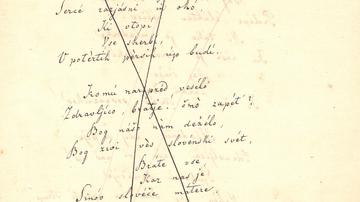 Serce razjásni ino okó,
Ki utopi
Vse skerbi,
V potertih pérsih úpo budí.
Komú narpréd vesélo
Zdravljico, bratje! čmò zapét'?
Bog našo nám deželo,
Bog živi vès slovénski svét,
Bráte vse,
Kar nas je
Sinóv slovèče mátere.